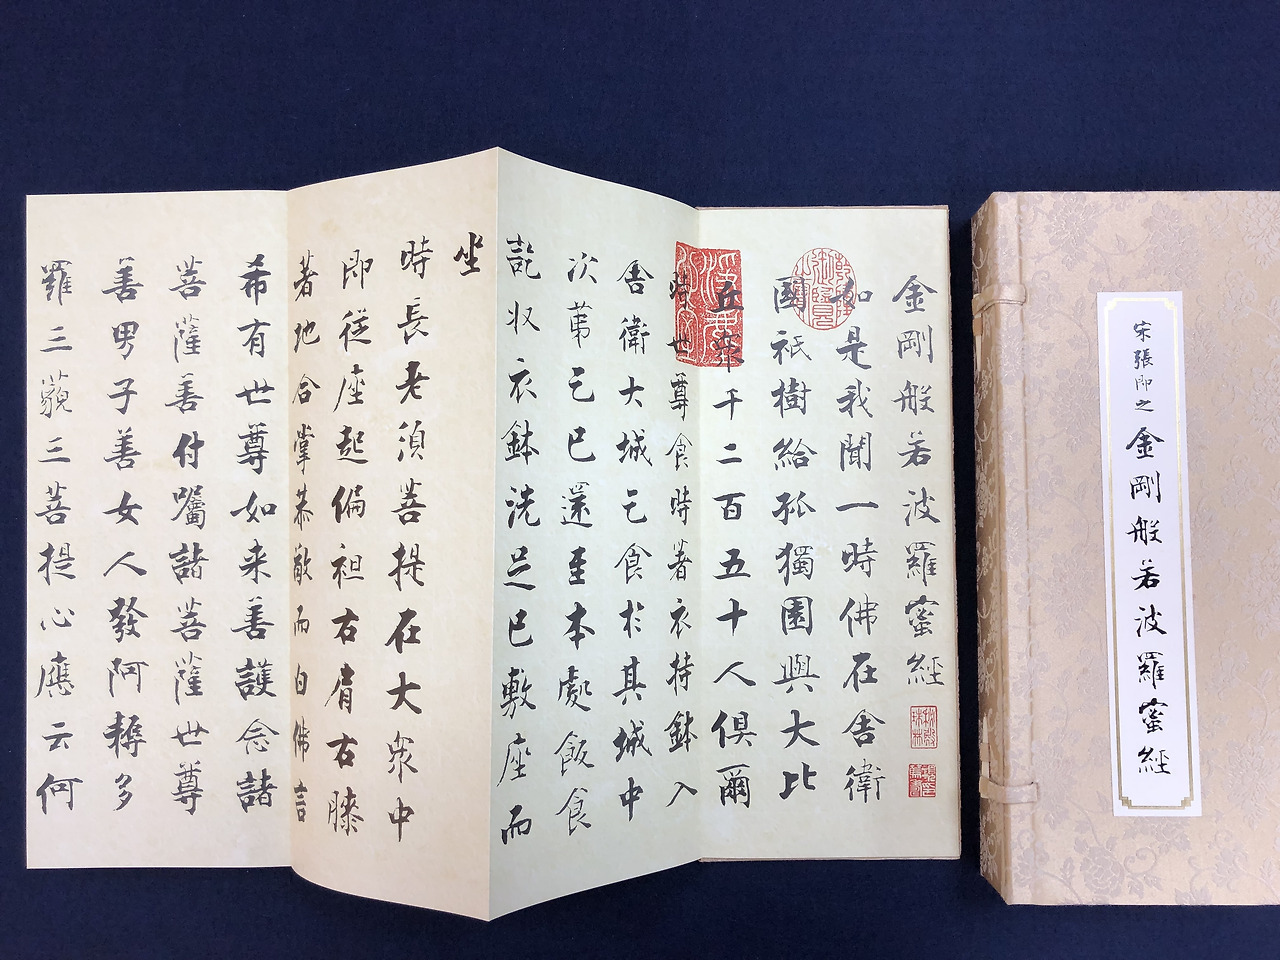 宋張即之金剛般若波羅蜜經
金剛般若波羅蜜經
秘殿珠林
乾隆御覽之寶
如是我聞一時佛在舍衛
國祇樹給孤獨園與大比
丘衆千二百五十人俱爾
時世尊食時著衣持鉢入
舍衛大城乞食於其城中
次第乞已還至本處飯食
訖收衣鉢洗足已敷座而
坐
時長老須菩提在大衆中
即從座起偏袒右肩右膝
著地合掌恭敬而白佛言
希有世尊如来善護念諸
菩薩善付囑諸菩薩世尊
善男子善女人發阿耨多
羅三藐三菩提心應云何